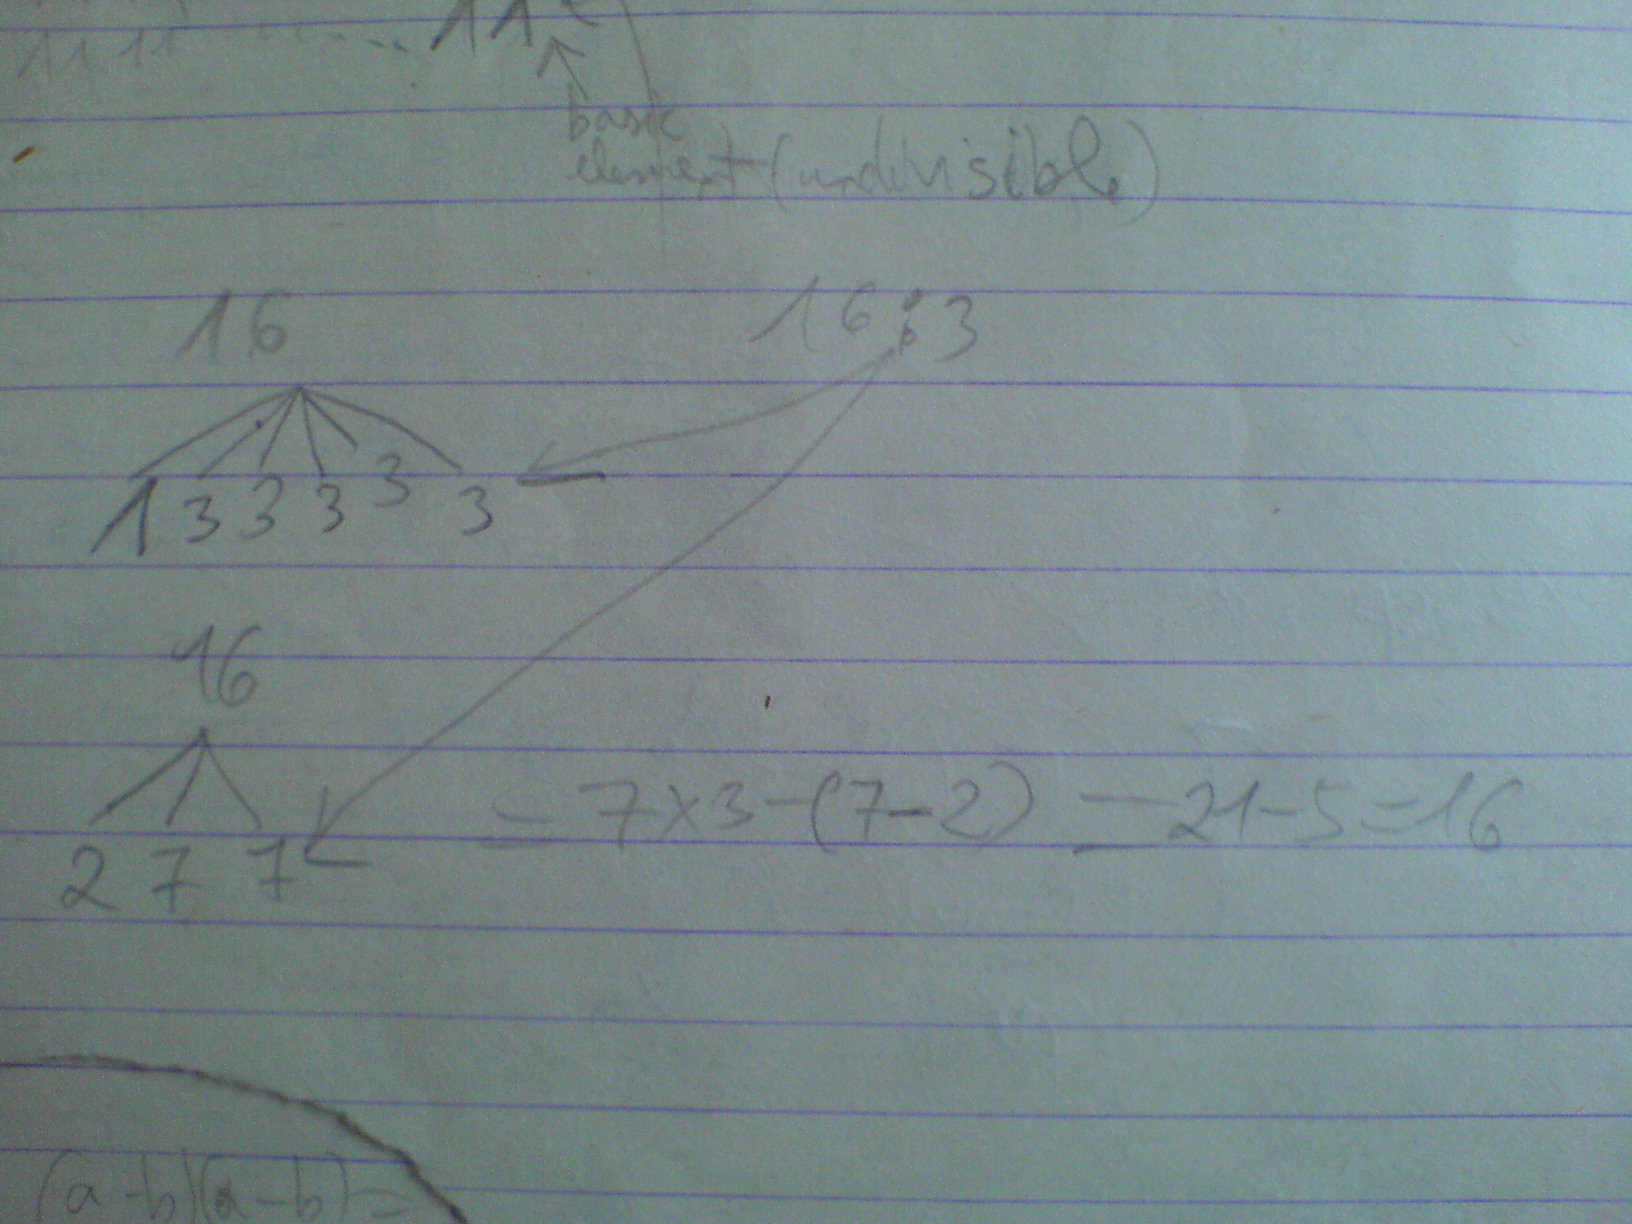 11 11 ..... 11
basic
element (undivisible)
16 16:3
1 3 3 3 3 3
16
2 7 7 = 7x3-(7-2) = 21-5=16
(a-b)(a-b)=